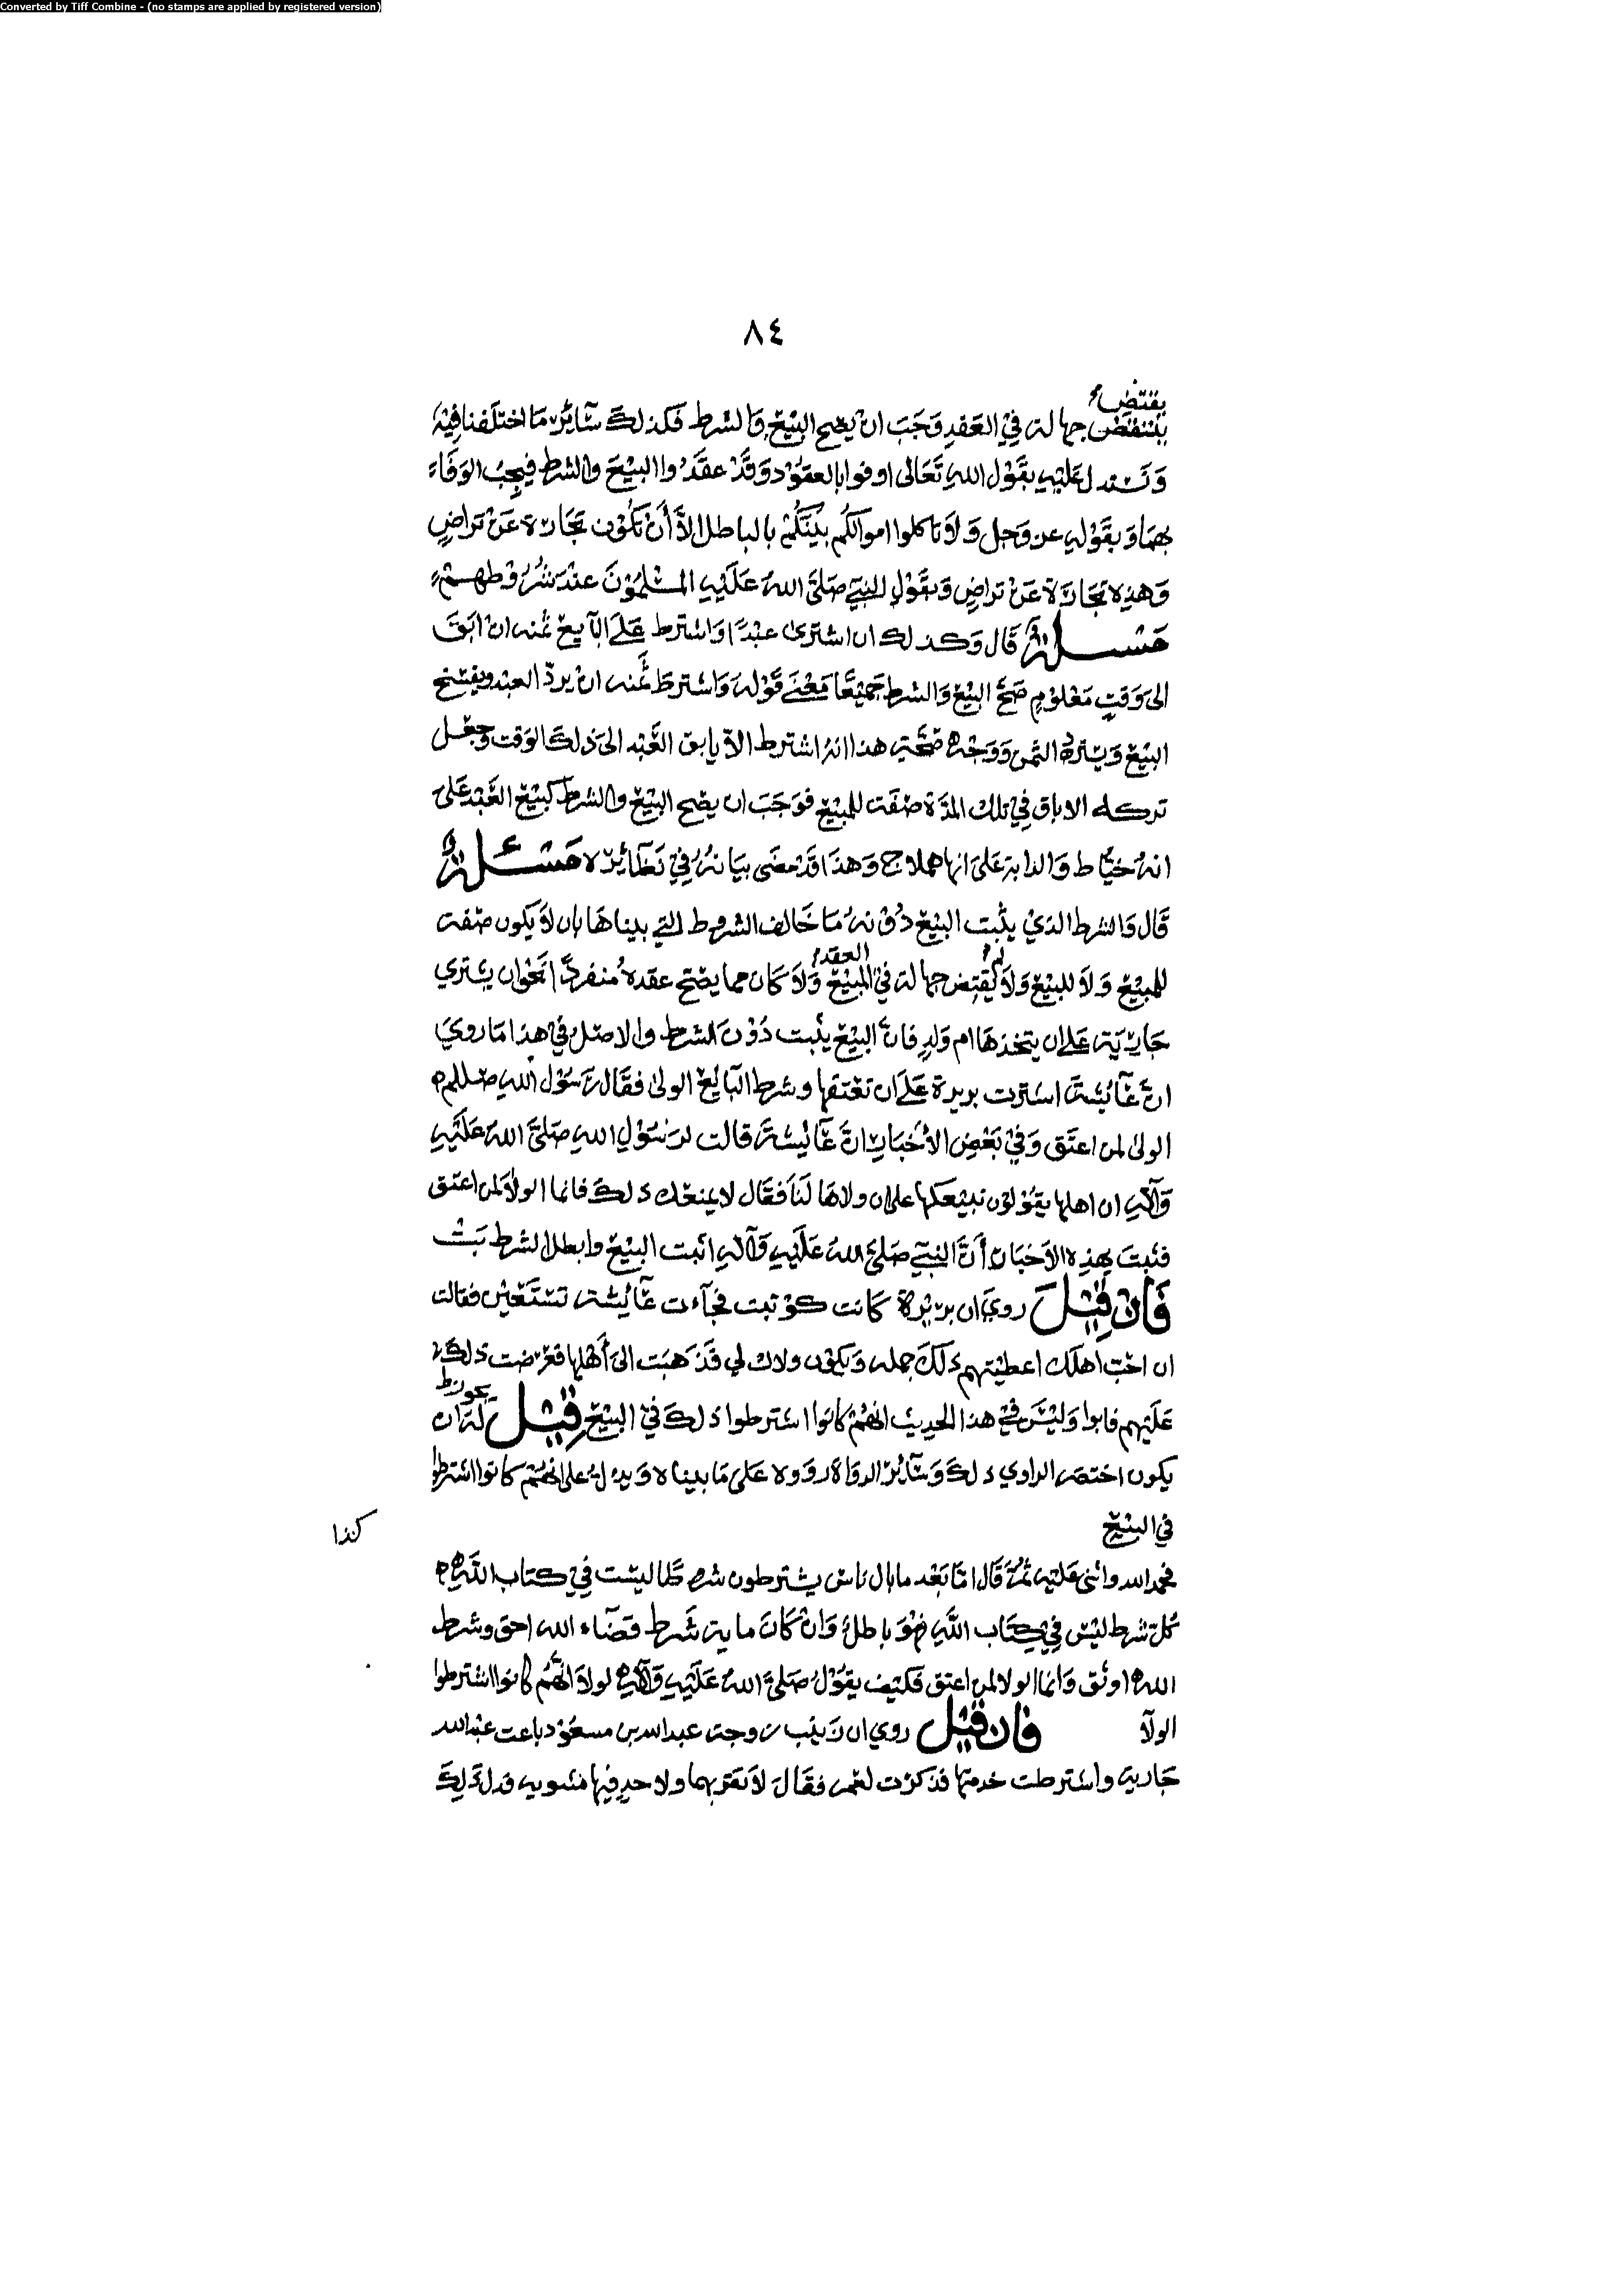 Converted by Tiff Combine - (no stamps are applied by registered version)
٨٤
يقتض
ينتقض جهالة في العقد وجب ان يصح البيع والشرط فكذلك سائر ما اختلفنا فيه
ونستدل عليه بقول الله تعالى اوفوا بالعقود وقد عقدوا البيع والشرط فيجب الوفاء
بهما وبقوله عز وجل ولا تاكلوا اموالكم بينكم بالباطل الا أن تكون تجارة عن تراض
وهذه تجارة عن تراض وبقول النبي صلى الله عليه المسلمون عند شروطهم
مسئلة قال وكذلك ان اشترى عبدا واشترط على البايع منه ان ابق
الى وقت معلوم صح البيع والشرط جميعا معنى قوله واشترط منه ان يرد العبد ويفسخ
البيع ويسترد الثمن ووجه صحته هذا انه اشترط الا يابق العبد الى ذلك الوقت وجعل
تركه الاباق في تلك المدة صفة للمبيع فوجب ان يصح البيع والشرط كبيع العبد على
انه خياط والدابة على انها هملاج وهذا قد مضى بيانه في نظائره مسئلة
قال والشرط الذي يثبت البيع دونه ما خالف الشروط التي بيناها بان لا يكون صفة
العقد
للمبيع ولا للبيع ولا يقتض جهالة في المبيع ولا كان مما يصح عقده منفردا نحو ان يشتري
جارية على ان يتخذها ام ولد فان البيع يثبت دون الشرط والاصل في هذا ما روي
ان عائشة اشترت بريرة على ان تعتقها وشرط البايع الولى فقال رسول الله صللم
الولى لمن اعتق وفي بعض الأخبار ان عائيشة قالت لرسول الله صلى الله عليه
وآله ان اهلها يقولون نبيعكها على ان ولاها لنا فقال لا يمنعك ذلك فانما الولا لمن اعتق
فثبت بهذه الاخبار أن النبي صلى الله عليه وآله اثبت البيع وابطل الشرط
فان قيل روي ان بريرة كانت كوتبت فجآءت عائشة تستعين فقالت
ان احب اهلك اعطيتهم ذلك جمله ويكون ولاك لي فذهبت الى أهلها فعرضت ذلك
عليهم فابوا وليس في هذا الحديث انهم كانوا اشترطوا ذلك في البيع قيل له ان
يكون اختصر الراوي ذلك وسائر الرواة رووه على ما بيناه ويدل على انهم كانوا اشترطوا
في البيع
كذا
فحمد الله واثنى عليه ثم قال اما بعد ما بال ناس يشترطون شروطا ليست في كتاب الله
كل شرط ليس في كتاب الله فهو باطل وان كان ماية شرط قضاء الله احق وشرط
الله اوثق وانما الولا لمن اعتق فكيف يقول صلى الله عليه وآله لولا انهم كانوا اشترطوا
الولآ فان قيل روي ان زينب زوجة عبد الله بن مسعود باعت عبد الله
جارية واشترطت خدمتها فذكرت لعمر فقال لا تقربها ولاحد فيها مثنويه فدل ذلك